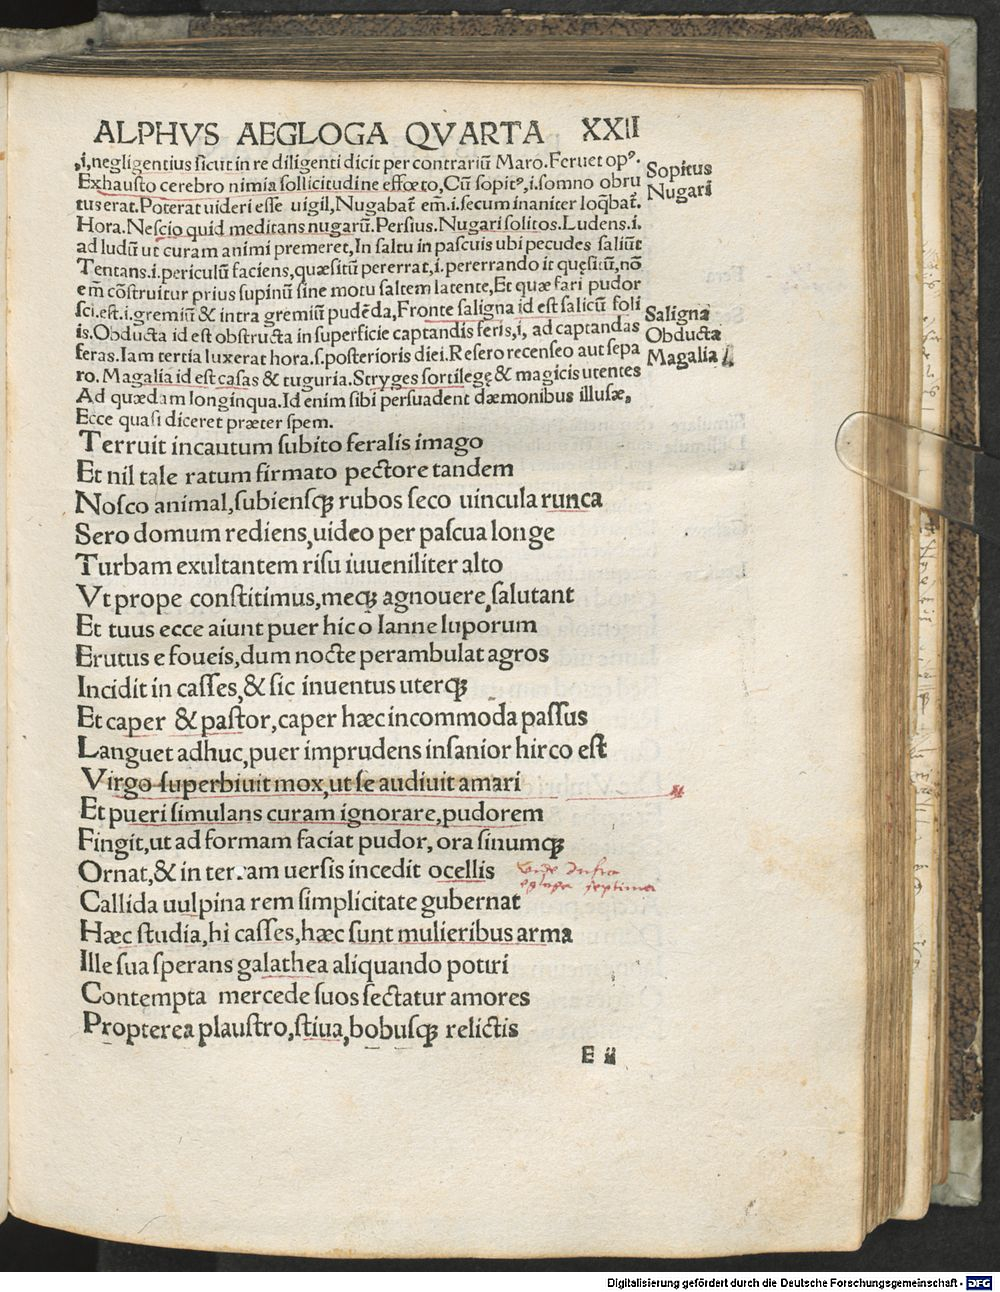 ALPHVS AEGLOGA QVARTA XXII
,i,negligentius sicut in re diligenti dicit per contrariũ Maro. Feruet opꝰ.
Exhausto cerebro nimia sollicitudine effœto, Cũ sopitꝰ,i.somno obru
tus erat. Poterat uideri esse uigil, Nugabat̃ em̃.i.secum inaniter loq̃bat̃.
Hora. Nescio quid meditans nugarũ. Persius. Nugari solitos. Ludens.i.
ad ludũ ut curam animi premeret, In saltu in pascuis ubi pecudes saliũt
Tentans.i.periculũ faciens, quæsitũ pererrat,i.pererrando it quęsitũ, nõ
em̃ cõstruitur prius supinũ sine motu saltem latente, Et quæ fari pudor
sci.est.i.gremiũ & intra gremiũ pudẽda, Fronte saligna id est salicũ foli
is. Obducta id est obstructa in superficie captandis feris,i, ad captandas
feras. Iam tertia luxerat hora.s.posterioris diei. Resero recenseo aut sepa
ro. Magalia id est casas & tuguria. Stryges sortilegę & magicis utentes
Ad quædam longinqua. Id enim sibi persuadent dæmonibus illusæ,
Ecce quasi diceret præter spem.
Sopitus
Nugari
Saligna
Obducta
Magalia
Terruit incautum subito feralis imago
Et nil tale ratum firmato pectore tandem
Nosco animal, subiensqꝫ rubos seco uincula runca
Sero domum rediens, uideo per pascua longe
Turbam exultantem risu iuueniliter alto
Vt prope constitimus, meqꝫ agnouere, salutant
Et tuus ecce aiunt puer hic o Ianne luporum
Erutus e foueis, dum nocte perambulat agros
Incidit in casses, & sic inuentus uterqꝫ
Et caper & pastor, caper hæc incommoda passus
Languet adhuc, puer imprudens insanior hirco est
Virgo superbiuit mox, ut se audiuit amari
Et pueri simulans curam ignorare, pudorem
Fingit, ut ad formam faciat pudor, ora sinumqꝫ
Ornat, & in terram uersis incedit ocellis
vide Infra
egloga septima
Callida uulpina rem simplicitate gubernat
Hæc studia, hi casses, hæc sunt mulieribus arma
Ille sua sperans galathea aliquando potiri
Contempta mercede suos sectatur amores
Propterea plaustro, stiua, bobusqꝫ relictis
E ii
Digitalisierung gefördert durch die Deutsche Forschungsgemeinschaft - DFG